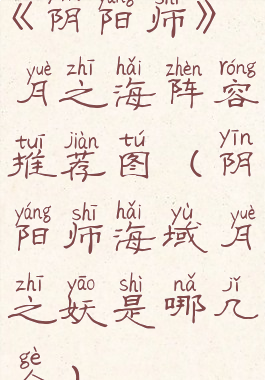 《阴阳师》
yuè zhī hǎi zhèn róng
月之海阵容
tuī jiàn tú yīn
推荐图（阴
yáng shī hǎi yù yuè
阳师海域月
zhī yāo shì nǎ jǐ
之妖是哪几
gè
个）